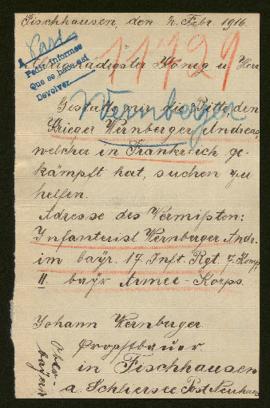 Fischhausen, den 2. Febr. 1916
11729
Pedir informes
Que se
Devolver
König u. Herr
Wernberger
Gestatte mir die Bitte den
Krieger Wernberger Andreas,
welcher in Frankreich ge-
kämpft hat, suchen zu
helfen.
Adresse des Vermißten:
Infanterist Wernberger Andr.
im bayr. 17. Inft. Rgt. 7. Komp.
II. bayr Armee-Korps.
Johann Wernberger
Propstbauer
in Fischhausen
a. Schliersee Post Neuhaus
Ober-
bayern